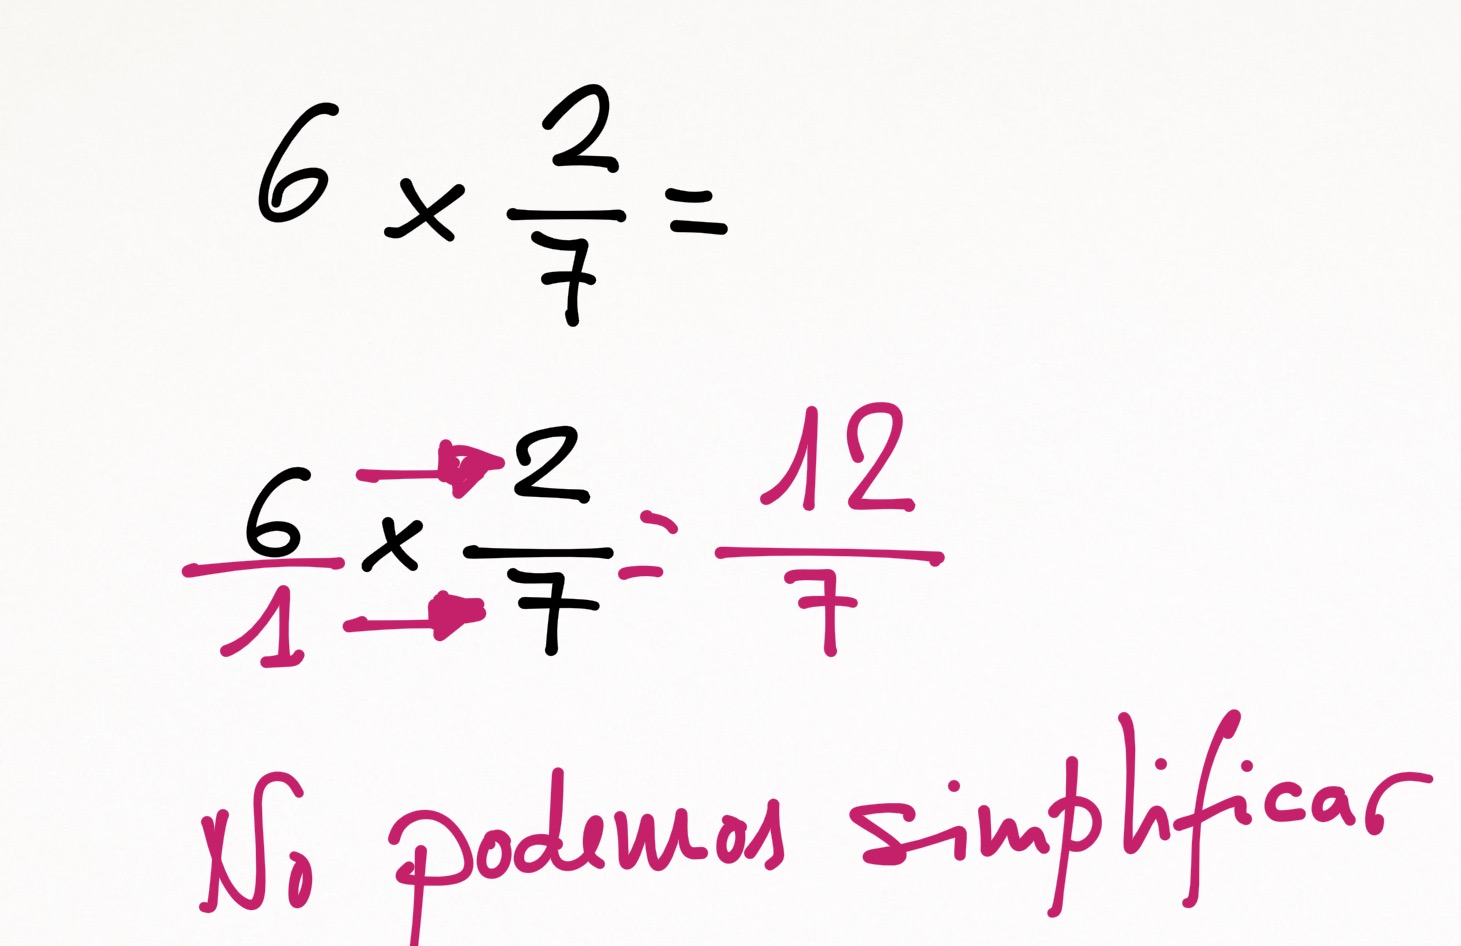 6 × 2/7 =
6/1 × 2/7 = 12/7
No podemos simplificar